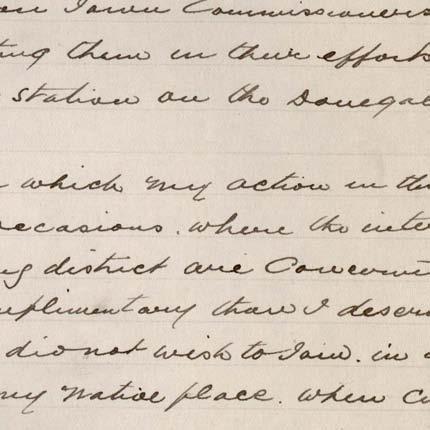 Town Commissioners
ting them in their efforts
station on the Donegal
which my action in th
occasions. where the inter
ng district are Concern
mplimentary than I deser
did not wish to Join. in
my native place. when